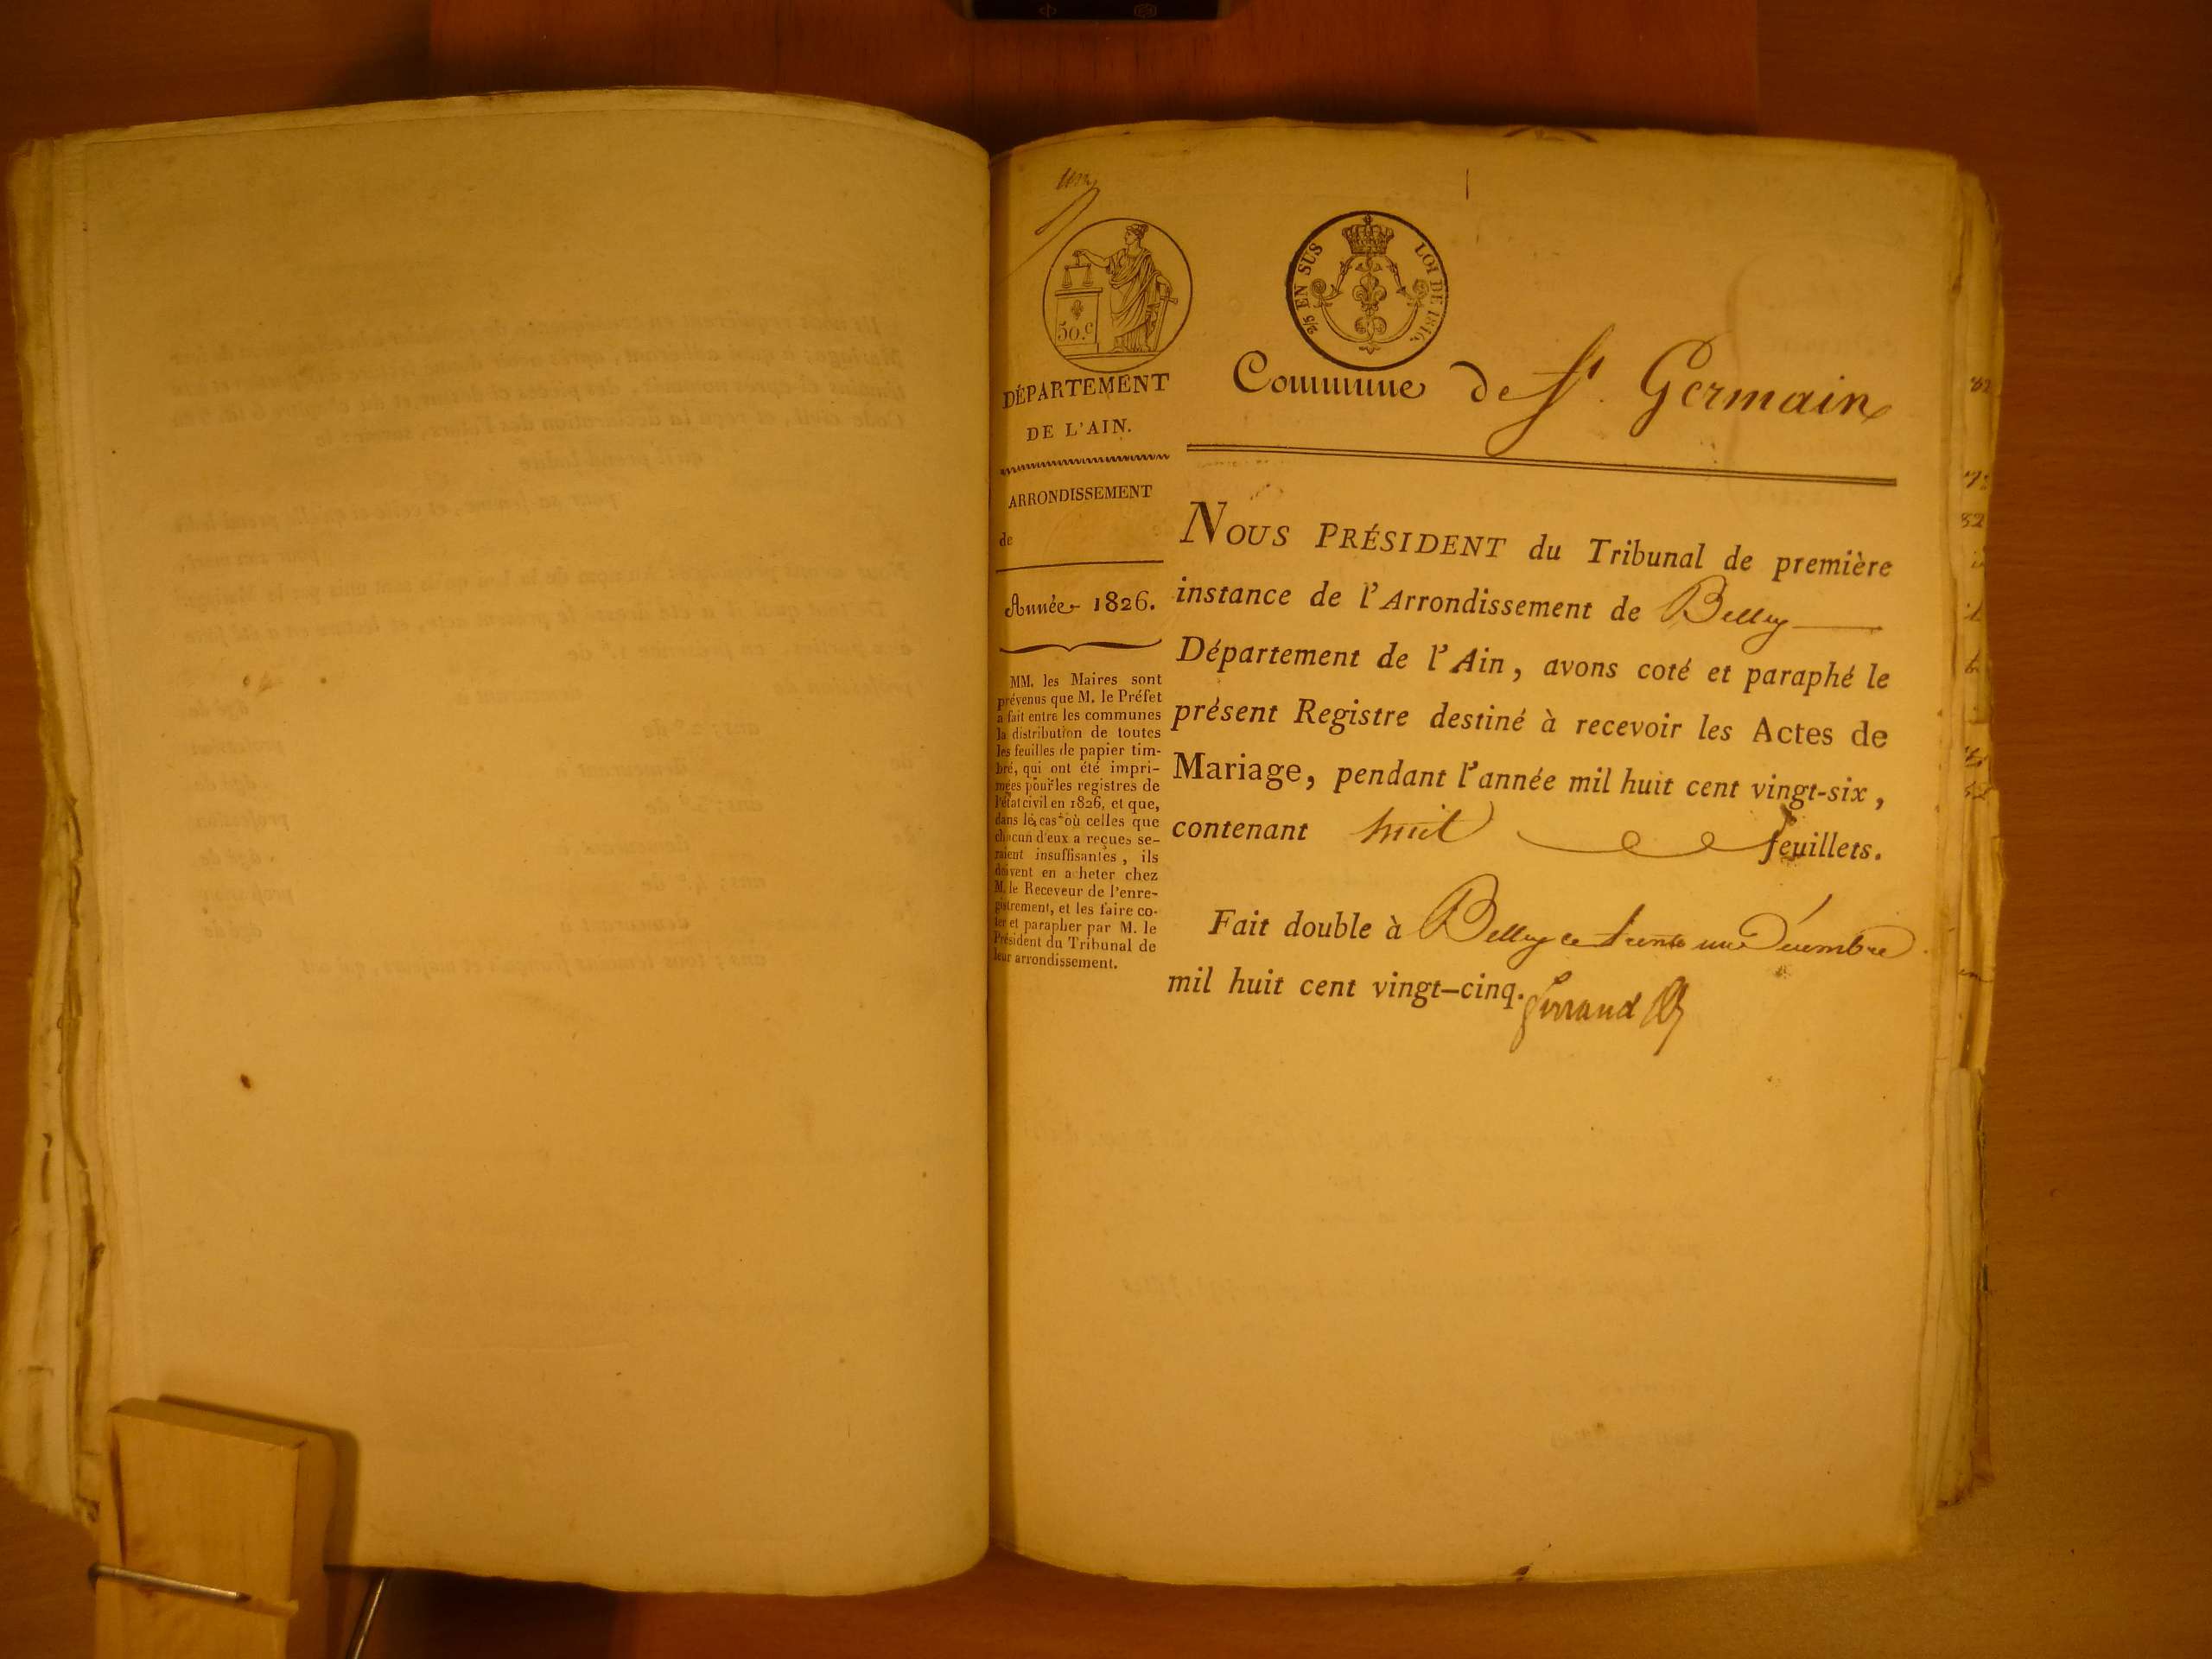 50.c
2/5 EN SUS LOI DE 1816.
DÉPARTEMENT
DE L'AIN.
ARRONDISSEMENT
de
Année 1826.
MM. les Maires sont
prévenus que M. le Préfet
a fait entre les communes
la distribution de toutes
les feuilles de papier tim-
bré, qui ont été impri-
mées pour les registres de
l'état civil en 1826, et que,
dans le cas où celles que
chacun d'eux a reçues se-
raient insuffisantes, ils
doivent en acheter chez
M. le Receveur de l'enre-
gistrement, et les faire co-
ter et parapher par M. le
Président du Tribunal de
leur arrondissement.
Commune de St. Germain
NOUS PRÉSIDENT du Tribunal de première
instance de l'Arrondissement de Belley
Département de l'Ain, avons coté et paraphé le
présent Registre destiné à recevoir les Actes de
Mariage, pendant l'année mil huit cent vingt-six,
contenant huit feuillets.
Fait double à Belley ce trente un Décembre
mil huit cent vingt-cinq.